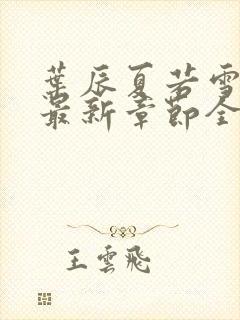 葉辰夏若雪
最新章節全
王雲飛